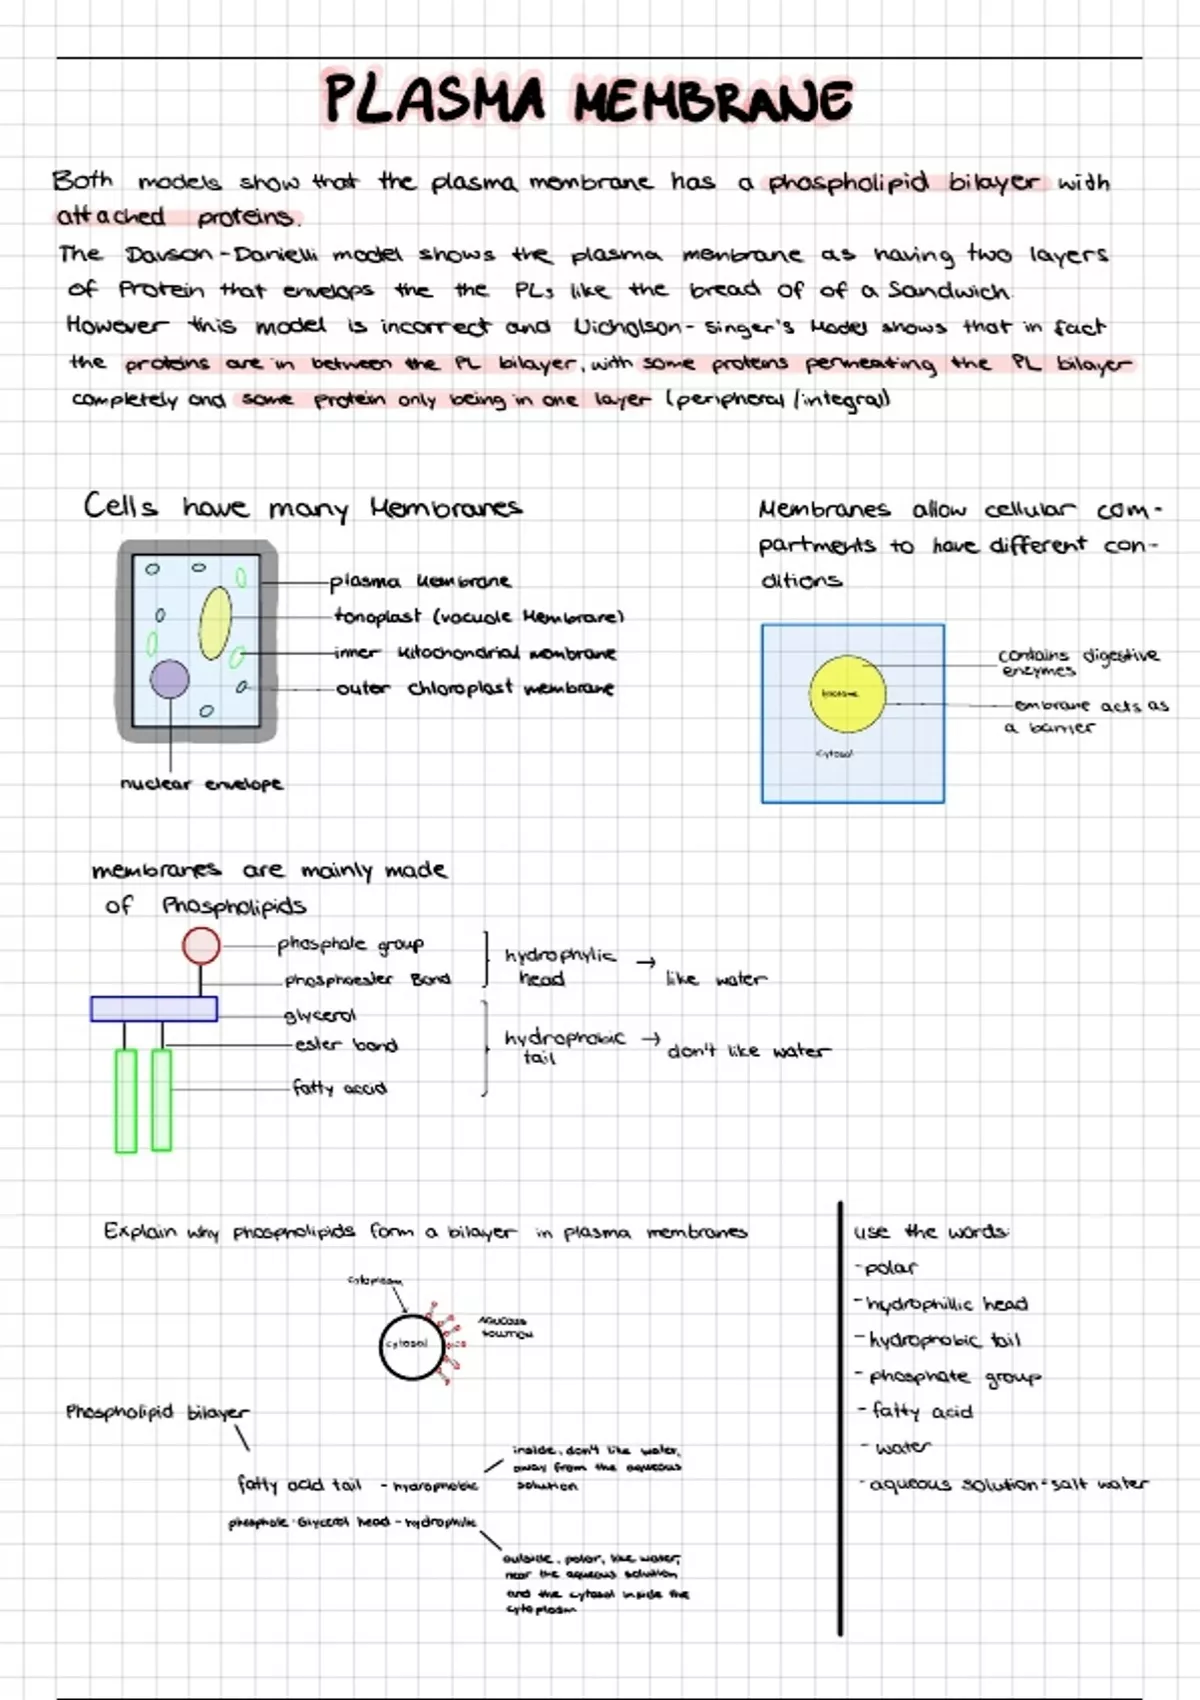 PLASMA MEMBRANE
Both models show that the plasma membrane has a phospholipid bilayer with
attached proteins.
The Davson-Danielli model shows the plasma membrane as having two layers
of Protein that envelops the the PLs like the bread of of a Sandwich.
However this model is incorrect and Nicholson-Singer's Model shows that in fact
the proteins are in between the PL bilayer, with some proteins permeating the PL bilayer
completely and some protein only being in one layer (peripheral/integral)
Cells have many Membranes
plasma Membrane
tonoplast (vacuole Membrane)
inner Mitochondrial membrane
outer chloroplast membrane
nuclear envelope
Membranes allow cellular com-
partments to have different con-
ditions
contains digestive
enzymes
embrane acts as
a barrier
cytosol
membranes are mainly made
of Phospholipids
phosphate group
phosphoester Bond
glycerol
ester bond
fatty accid
hydrophylic
head
→
like water
hydrophobic
tail
→
don't like water
Explain why phospholipids form a bilayer in plasma membranes
cytoplasm
cytosol
AQUEOUS
SOLUTION
Phospholipid bilayer
fatty acid tail - hydrophobic
inside, don't like water,
away from the aqueous
solution
phosphate-Glycerol head - hydrophilic
outside, polar, like water,
near the aqueous solution
and the cytosol inside the
cytoplasm
use the words:
-polar
-hydrophillic head
-hydrophobic tail
-phosphate group
-fatty acid
-water
-aqueous solution=salt water